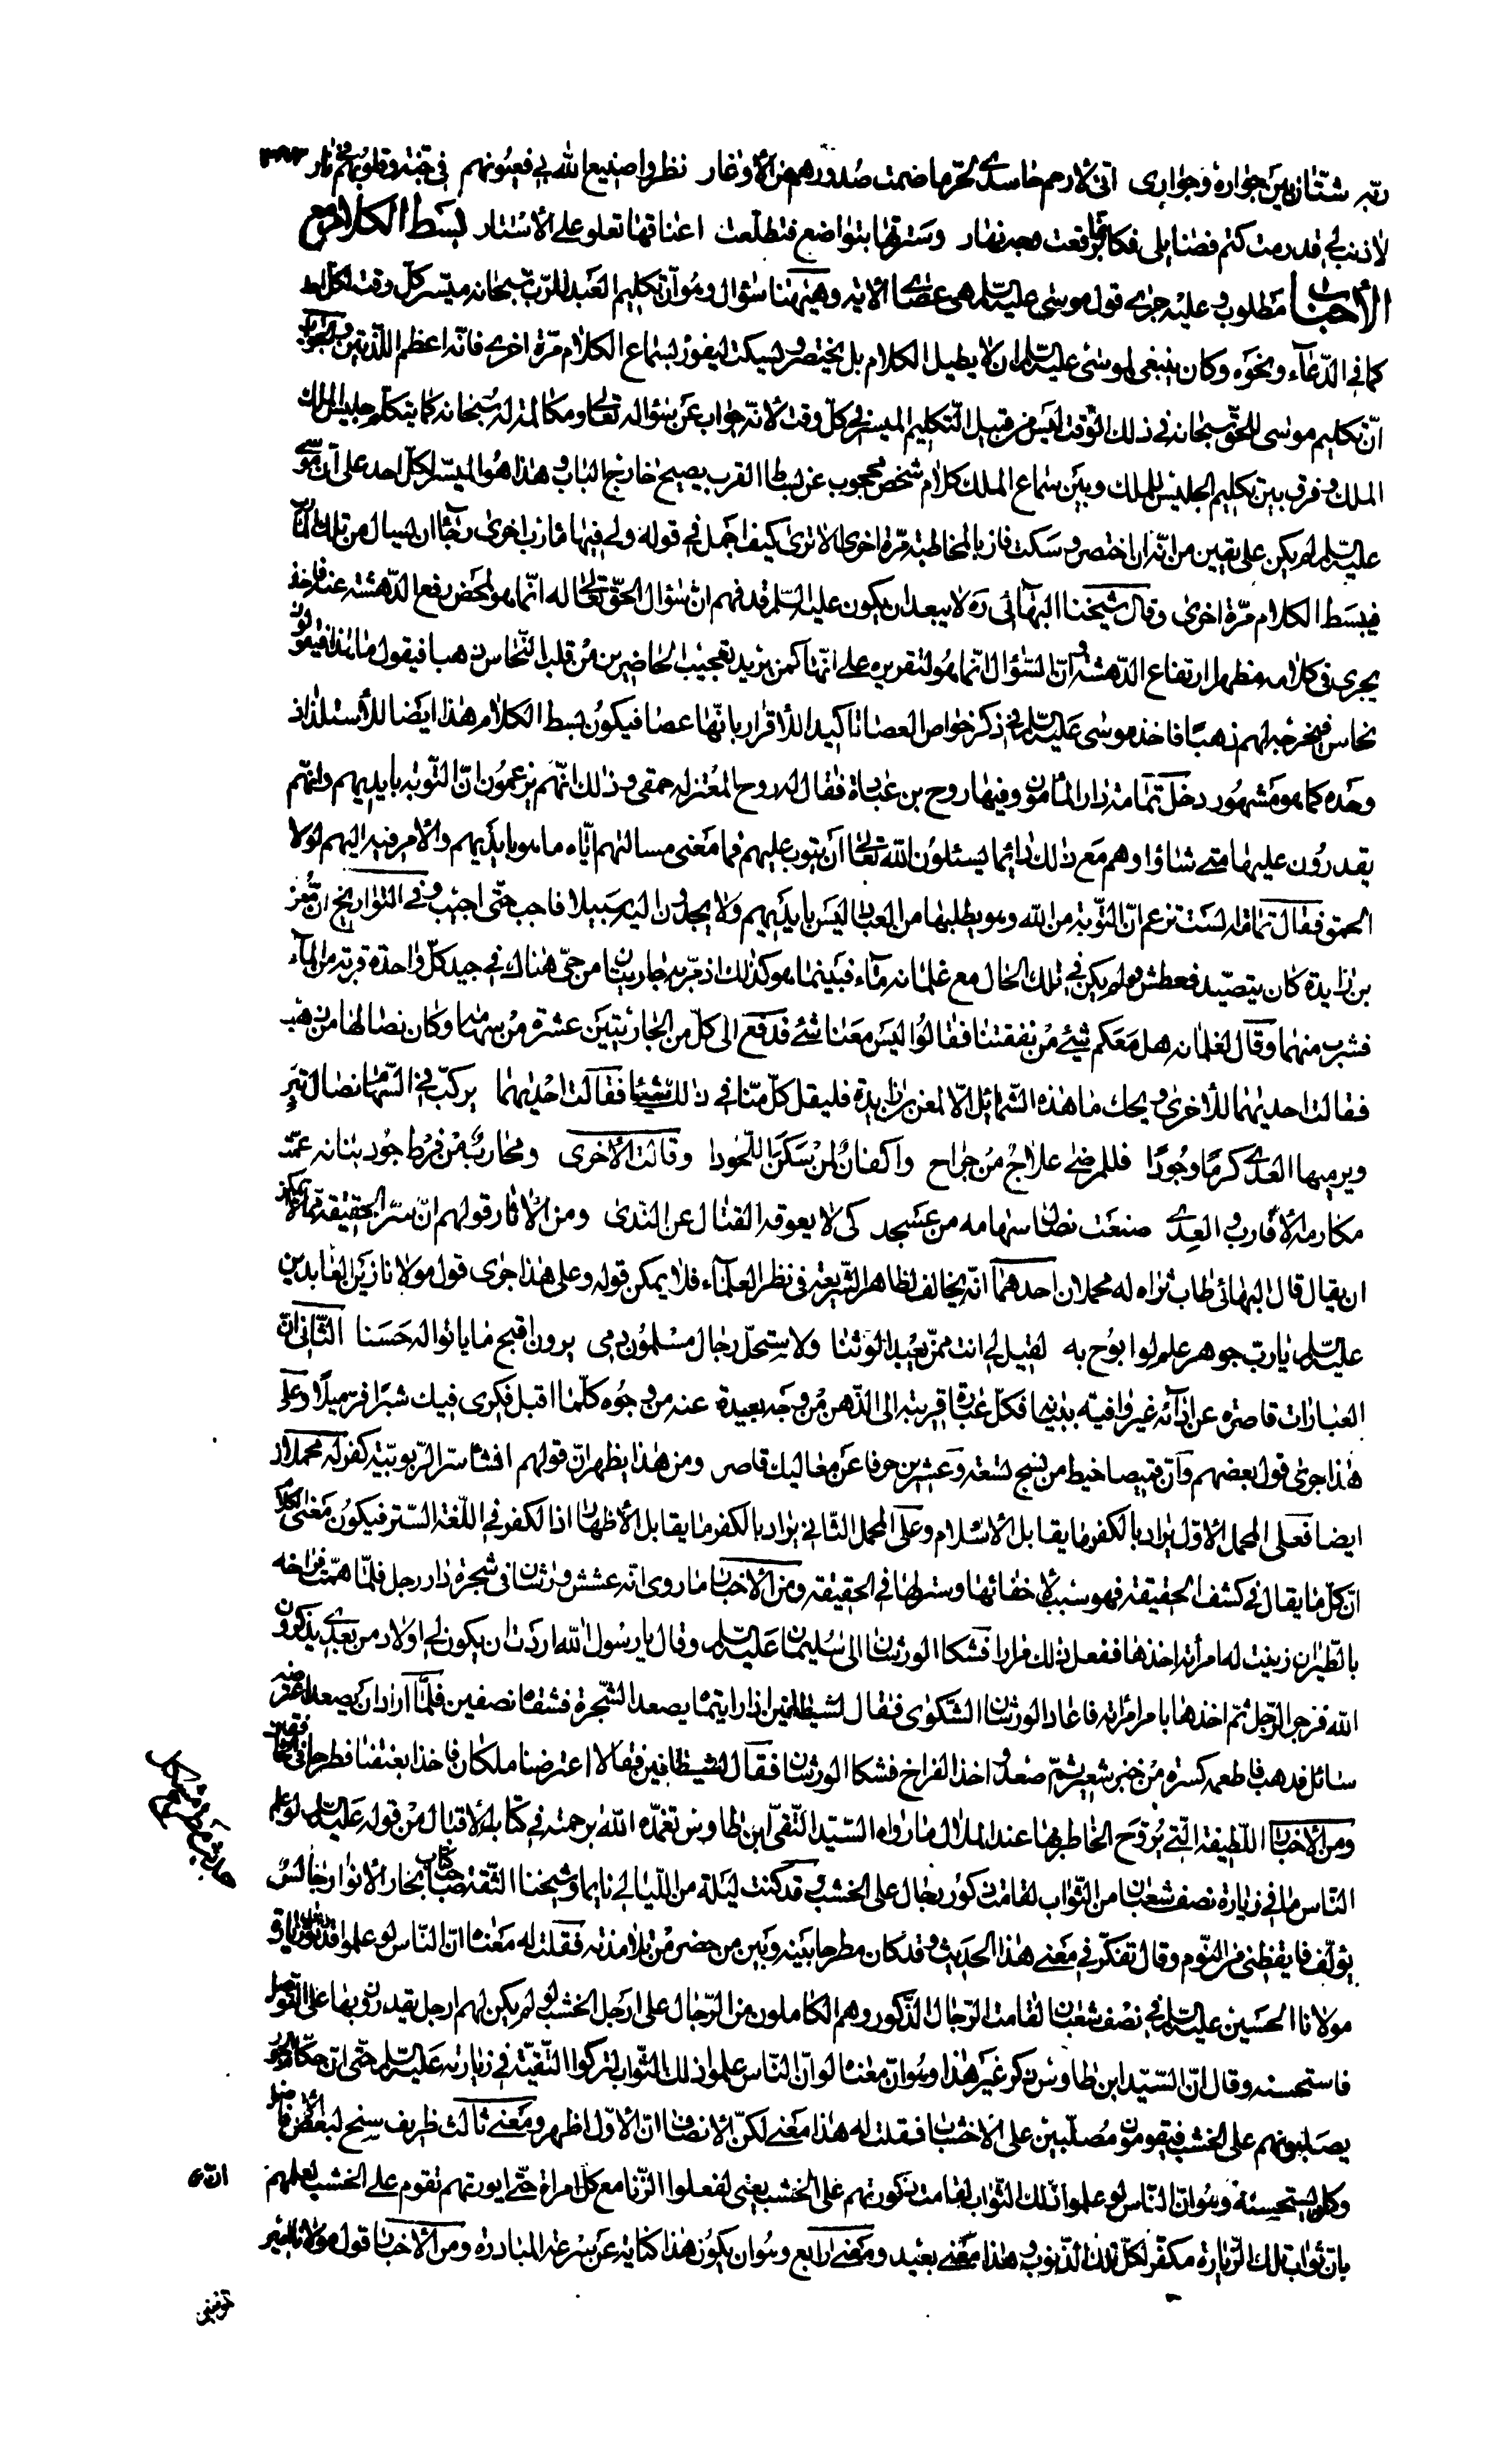 ربه شتان بين جواره وجواري اني لارحم حاسدي لحر ما ضمت صدورهم من الأوغار نظروا صنيع الله بي فعيونهم في جنة وقلوبهم في نار
لا ذنب لي قد رمت كتم فضائلي فكانما برقعت وجه نهار وسترتها بتواضع فتطلعت اعناقها تعلو على الأستار بسط الكلام مع
الأحباب مطلوب وعليه جرى قول موسى عليه السلم هي عصاي الآية وهيهنا سؤال وهو ان تكليم العبد للرب سبحانه ميسر كل وقت لكل احد
كما في الدعاء ونحوه وكان ينبغي لموسى عليه السلم ان لا يطيل الكلام بل يختصر ويسكت ليفوز بسماع الكلام مرة اخرى فانه اعظم اللذتين والجواب
ان تكليم موسى للحق سبحانه في ذلك الوقت ليس من قبيل التكليم الميسر في كل وقت لأنه جواب عن سؤاله تعالى ومكالمته له سبحانه كما يتكلم جليس الملك
الملك وفرق بين تكليم الجليس للملك وبين سماع الملك كلام شخص محجوب عن بساط القرب يصيح خارج الباب وهذا هو الميسر لكل احد على ان موسى
عليه السلم لم يكن على يقين من انه ان اختصر وسكت فاز بالمخاطبة مرة اخرى الا ترى كيف اجمل في قوله ولي فيها مآرب اخرى رجاء ان يسال من تلك المآرب
فيبسط الكلام مرة اخرى وقال شيخنا البهائي ره لا يبعد ان يكون عليه السلم قد فهم ان سؤال الحق تعالى له انما هو لمحض رفع الدهشة عنه فاخذ
يجري في كلامه مظهرا ارتفاع الدهشة او ان السؤال انما هو لتقريره على انها كمن يزيد تعجيب الحاضرين من قلب النحاس ذهبا فيقول ما هذا فيقولون
نحاس فيخرجه لهم ذهبا فاخذ موسى عليه السلم في ذكر خواص العصا تاكيدا للأقرار بانها عصا فيكون بسط الكلام هذا ايضا للأستلذاذ
وحده كما هو مشهور دخل ثمامة دار المأمون وفيها روح بن عبادة فقال له روح المعتزله حمقى وذلك انهم يزعمون ان التوبة بايديهم وانهم
يقدرون عليها متى شاؤا وهم مع ذلك دائما يسئلون الله تعالى ان يتوب عليهم فما معنى مسالتهم اياه ما هو بايديهم والامر فيه اليهم لولا
الحمق فقال ثمامة الست تزعم ان التوبة من الله وهو يطلبها من العباد ليس بايديهم ولا يجدون اليه سبيلا فاجب حتى اجيب وفي التواريخ ان معن
بن زايدة كان يتصيد فعطش ولم يكن في تلك الحال مع غلمانه ماء فبينما هو كذلك اذ مر به جاريتان من حي هناك في جيد كل واحدة قربة من الماء
فشرب منهما وقال لغلمانه هل معكم شيئ من نفقتنا فقالوا ليس معنا شئ فدفع الى كل من الجاريتين عشرة من سهامه وكان نصالها من ذهب
فقالت احديهما للأخرى ويحك ما هذه الشمائل الا لمعن بن زايدة فليقل كل منا في ذلك شيئا فقالت احديهما يركب في السهام نصال تبر
ويرميها العدى كرما وجودا فللمرضى علاج من جراح واكفان لمن سكن اللحودا وقالت الأخرى ومحارب من فرط جود بنانه عمت
مكارمه الأقارب والعدى صنعت نصال سهامه من عسجد كي لا يعوقه القتال عن الندى ومن الأثار قولهم ان سر الحقيقة مما لا يمكن
ان يقال قال البهائي طاب ثراه له محملان احدهما انه يخالف لظاهر الشريعة في نظر العلماء فلا يمكن قوله وعلى هذا جرى قول مولانا زين العابدين
عليه السلم يا رب جوهر علم لو ابوح به لقيل لي انت ممن يعبد الوثنا ولا ستحل رجال مسلمون دمي يرون اقبح ما ياتوا له حسنا الثاني ان
العبارات قاصرة عن ادائه غير وافية ببيانه فكل عبارة قريبة الى الذهن من وجه بعيدة عنه من وجوه كلما اقبل فكري فيك شبرا فر ميلا وعلى
هذا جرى قول بعضهم وان قميصا خيط من نسج تسعة وعشرين حرفا عن معاليك قاصر ومن هذا يظهر ان قولهم افشاء سر الربوبية كفر له محملان
ايضا فعلى المحمل الأول يراد بالكفر ما يقابل الأسلام وعلى المحمل الثاني يراد بالكفر ما يقابل الأظهار اذ الكفر في اللغة الستر فيكون معنى الكلام
ان كل ما يقال في كشف الحقيقة فهو سبب لاخفائها وسترها في الحقيقة ومن الأخبار ما روى انه عشش ورشان في شجرة دار رجل فلما همت فراخه
بالطيران زينت له امرأته اخذها ففعل ذلك مرارا فشكا الورشان الى سليمان عليه السلم وقال يا رسول الله اردت ان يكون لي اولاد من بعدي يذكرون
الله فزجر الرجل ثم اخذها بامر امرأته فاعاد الورشان الشكوى فقال لشيطانين اذا رايتماه يصعد الشجرة فشقاه نصفين فلما اراد ان يصعد اعترضه
سائل فذهب فاطعمه كسرة من خبز شعير ثم صعد واخذ الفراخ فشكا الورشان فقال للشيطانين فقالا اعترضنا ملكان فاخذا بعنقنا فطرحانا في
ومن الأخبار اللطيفة التي يروح الخاطر بها عند الملال ما رواه السيد التقي ابن طاوس تغمده الله برحمته في كتابه الأقبال من قوله عليه السلم لو علم
الناس ما في زيارة نصف شعبان من الثواب لقامت ذكور رجال على الخشب وقد كنت ليلة من الليالي نايما وشيخنا الثقة صاحب كتاب بحار الأنوار جالس
يؤلف فايقظني من النوم وقال تفكر في معنى هذا الحديث وقد كان مطرحا بينه وبين من حضر من تلامذته فقلت له معناه ان الناس لو علموا قدر ثواب زيارة
مولانا الحسين عليه السلم في نصف شعبان لقامت الرجال الذكور وهم الكاملون من الرجال على ارجل الخشب لو لم يكن لهم ارجل يقدرون بها على
فاستحسنه وقال ان السيد ابن طاوس ذكر غير هذا وهو ان معناه لو ان الناس علموا ذلك الثواب لتركوا التقية في زيارته عليه السلم حتى ان حكام الجور
يصلبونهم على الخشب فيقومون مصلبين على الاخشاب فقلت له هذا معنى لكن الانصاف ان الأول اظهر ومعنى ثالث ظريف سنح لبعض الأفاضل
وكان يستحسنه وهو ان الناس لو علموا ذلك الثواب لقامت ذكورتهم على الخشب يعني لفعلوا الزنا مع كل امراة حتى ايورتهم تقوم على الخشب لعلمهم
بان ثواب تلك الزيارة مكفر لكل تلك الذنوب وهذا معنى بعيد ومعنى رابع وهو ان يكون هذا كناية عن سرعة المبادرة ومن الأخبار قول مولانا امير